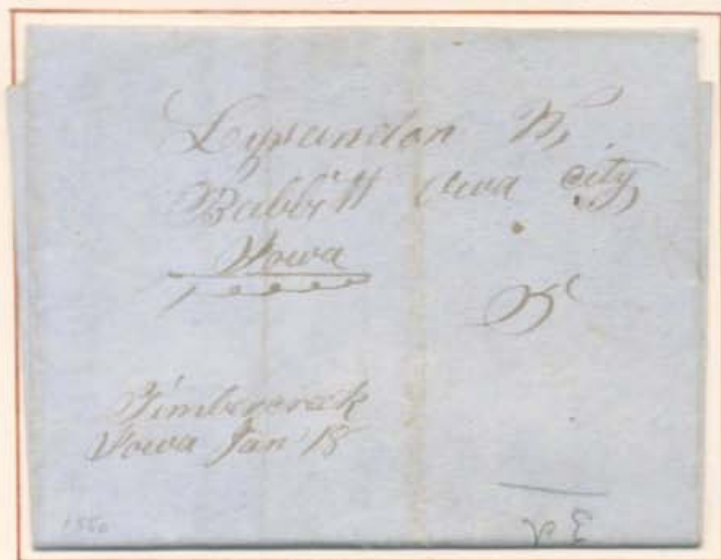 Lysandon W,
Babbitt Iowa City
Iowa
Timbercreek
Iowa Jan 18
1850